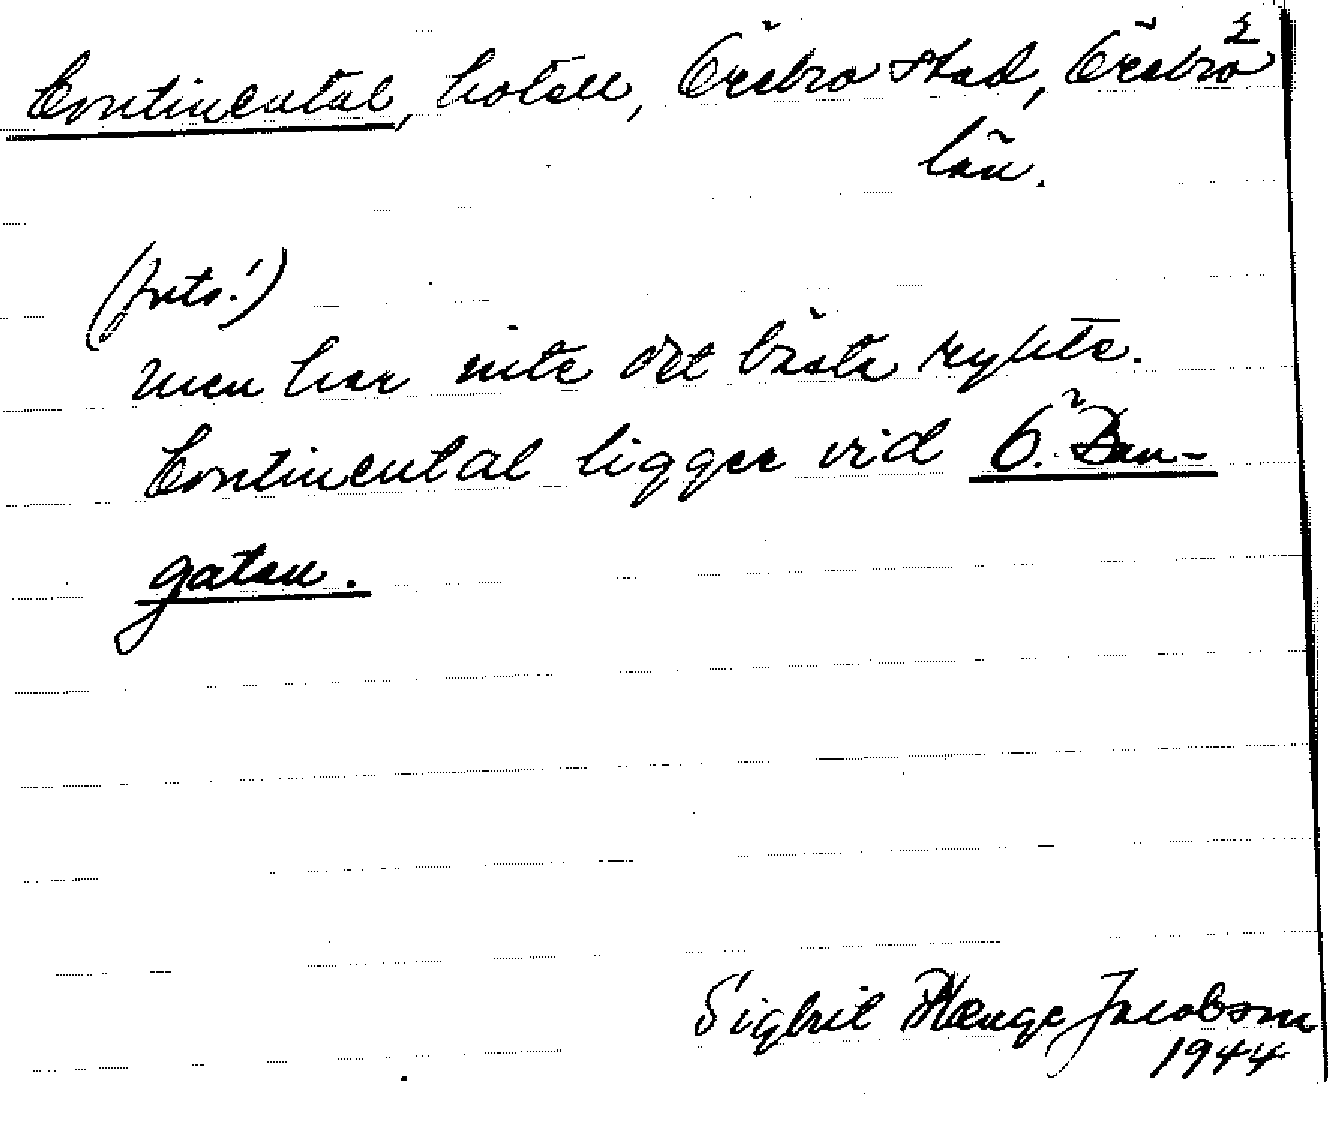 2
Continental, hotell, Örebro stad, Örebro
län.
(forts.!)
men har inte det bästa rykte.
Continental ligger vid Ö. Ban-
gatan.
Sigbrit Plænge Jacobson
1944